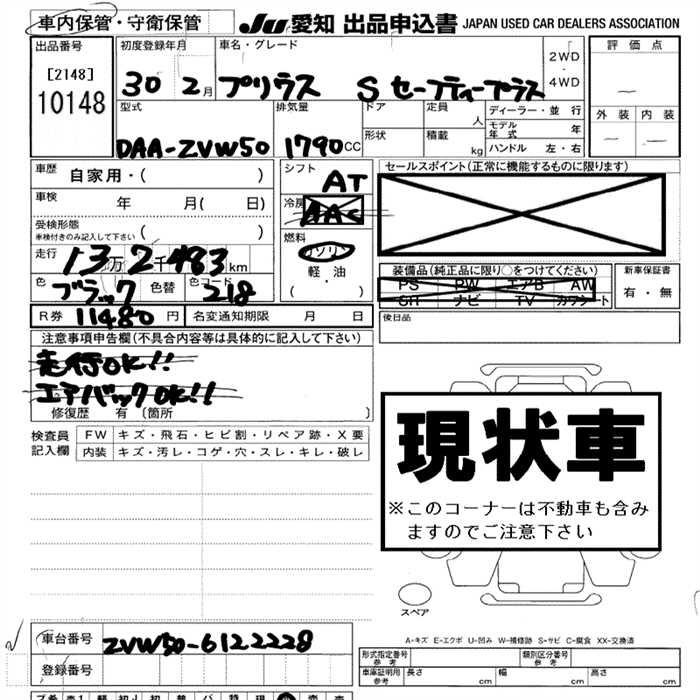 車内保管・守衛保管 JU 愛知 出品申込書 JAPAN USED CAR DEALERS ASSOCIATION
出品番号 初度登録年月 車名・グレード 2WD・4WD 評価点
[2148] 10148 30 2月 プリウス S セーフティープラス
型式 排気量 ドア 定員 人 ディーラー・並行 外装 内装
DAA-ZVW50 1790cc 形状 積載 kg モデル年式 年
ハンドル 左・右
車歴 自家用・( ) シフト AT セールスポイント(正常に機能するものに限ります)
車検 年 月( 日) 冷房 AAC
受検形態 ※車検付きのみ記入して下さい ( ) 燃料 ガソリン
走行 13万2千483km 軽・油 装備品(純正品に限り○をつけてください) 新車保証書
色 ブラック 色替 色コード 218 ( ・ ) PS PW エアB AW 有・無
SR ナビ TV カワシート
R券 11480円 名変通知期限 月 日 後日品
注意事項申告欄(不具合内容等は具体的に記入して下さい)
走行OK!!
エアバックOK!!
修復歴 有 〔箇所 〕
検査員記入欄 FW キズ・飛石・ヒビ割・リペア跡・X要
内装 キズ・汚レ・コゲ・穴・スレ・キレ・破レ
現状車
※このコーナーは不動車も含み
ますのでご注意下さい
スペア
車台番号 ZVW50-6122228 A-キズ E-エクボ U-凹み W-補修跡 S-サビ C-腐食 XX-交換済
形式指定番号 参考 類別区分番号 参考
登録番号 車庫証明用 参考 長さ cm 幅 cm 高さ cm